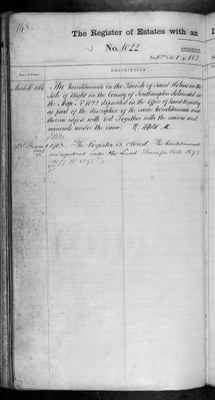 148.
The Register of Estates with an
No. 1022
DESCRIPTION
The hereditaments in the Parish of Saint Helens in the
Isle of Wight in the County of Southampton delineated on
the Map No 1022 deposited in the Office of Land Registry
as part of the description of the same hereditaments and
thereon edged with red Together with the mines and
minerals under the same.
1903. The Register is closed. The hereditaments
are registered under the Land Transfer Acts 1875